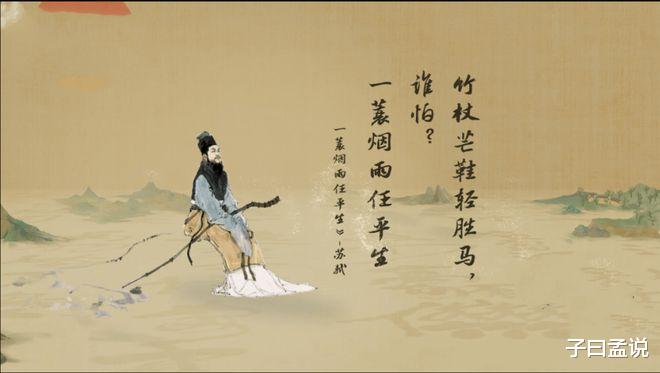 竹杖芒鞋轻胜马，
谁怕？
一蓑烟雨任平生
一蓑烟雨任平生》-苏轼
子曰孟说